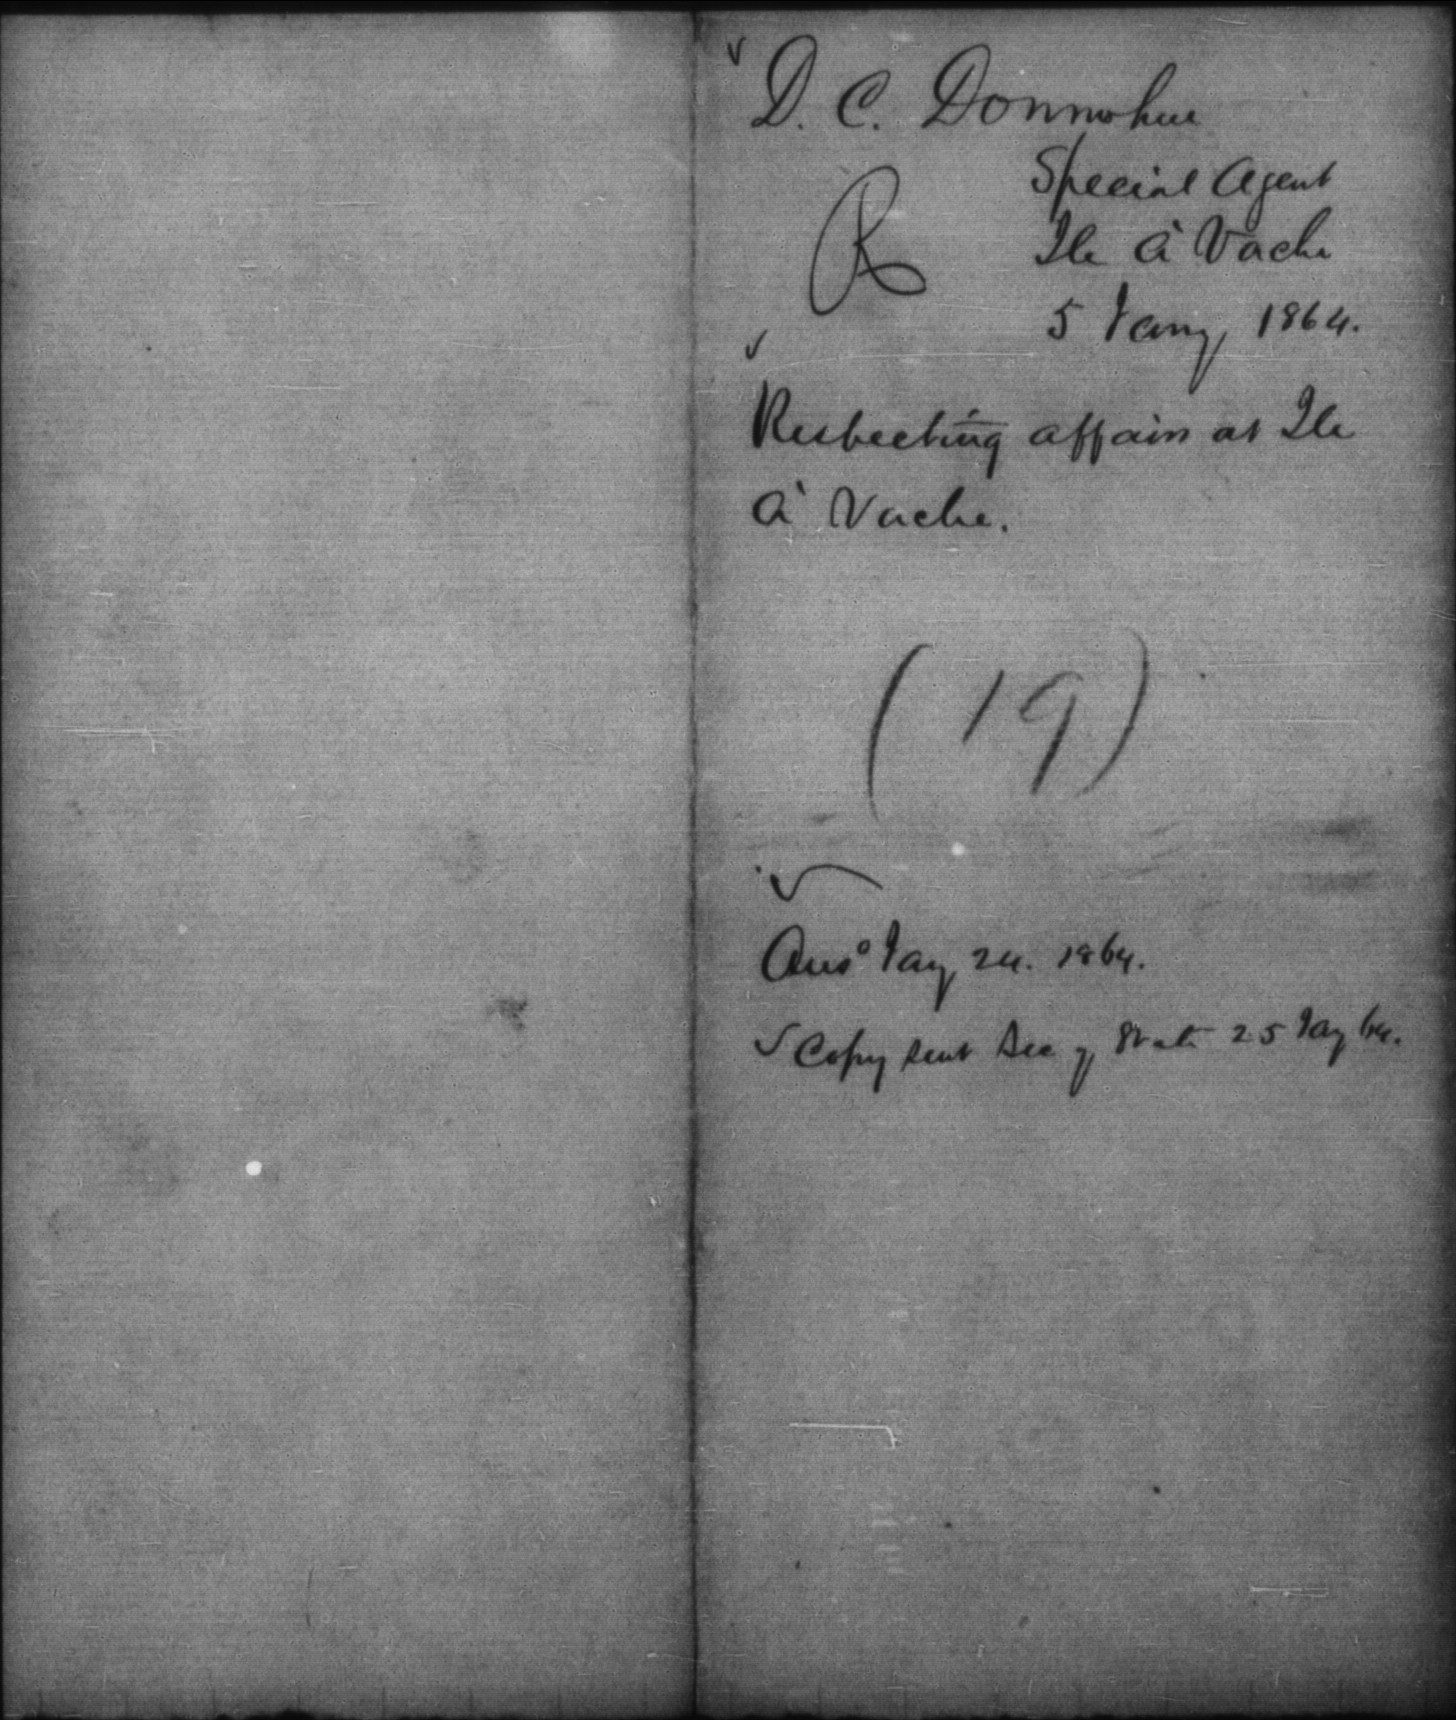 D. C. Donnohue
Special Agent
R
Ile à Vache
5 Jany 1864.
Respecting affairs at Ile
à Vache.
(19)
Ansd Jany 24. 1864.
Copy sent Sec of State 25 Jany 64.